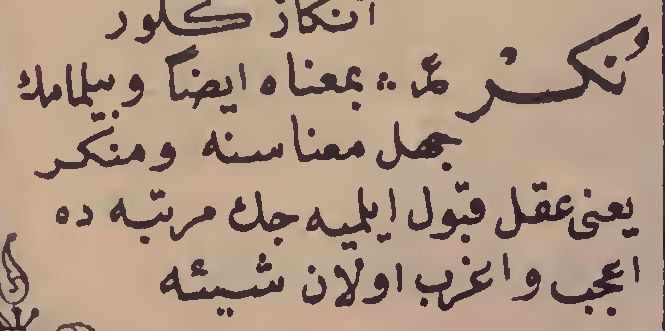 انكار كلور
نُكْر مّر بمعناه ايضاً وبيلمامك
جهل معناسنه ومنكر
يعنى عقل قبول ايلميه جك مرتبه ده
اعجب واغرب اولان شيئه